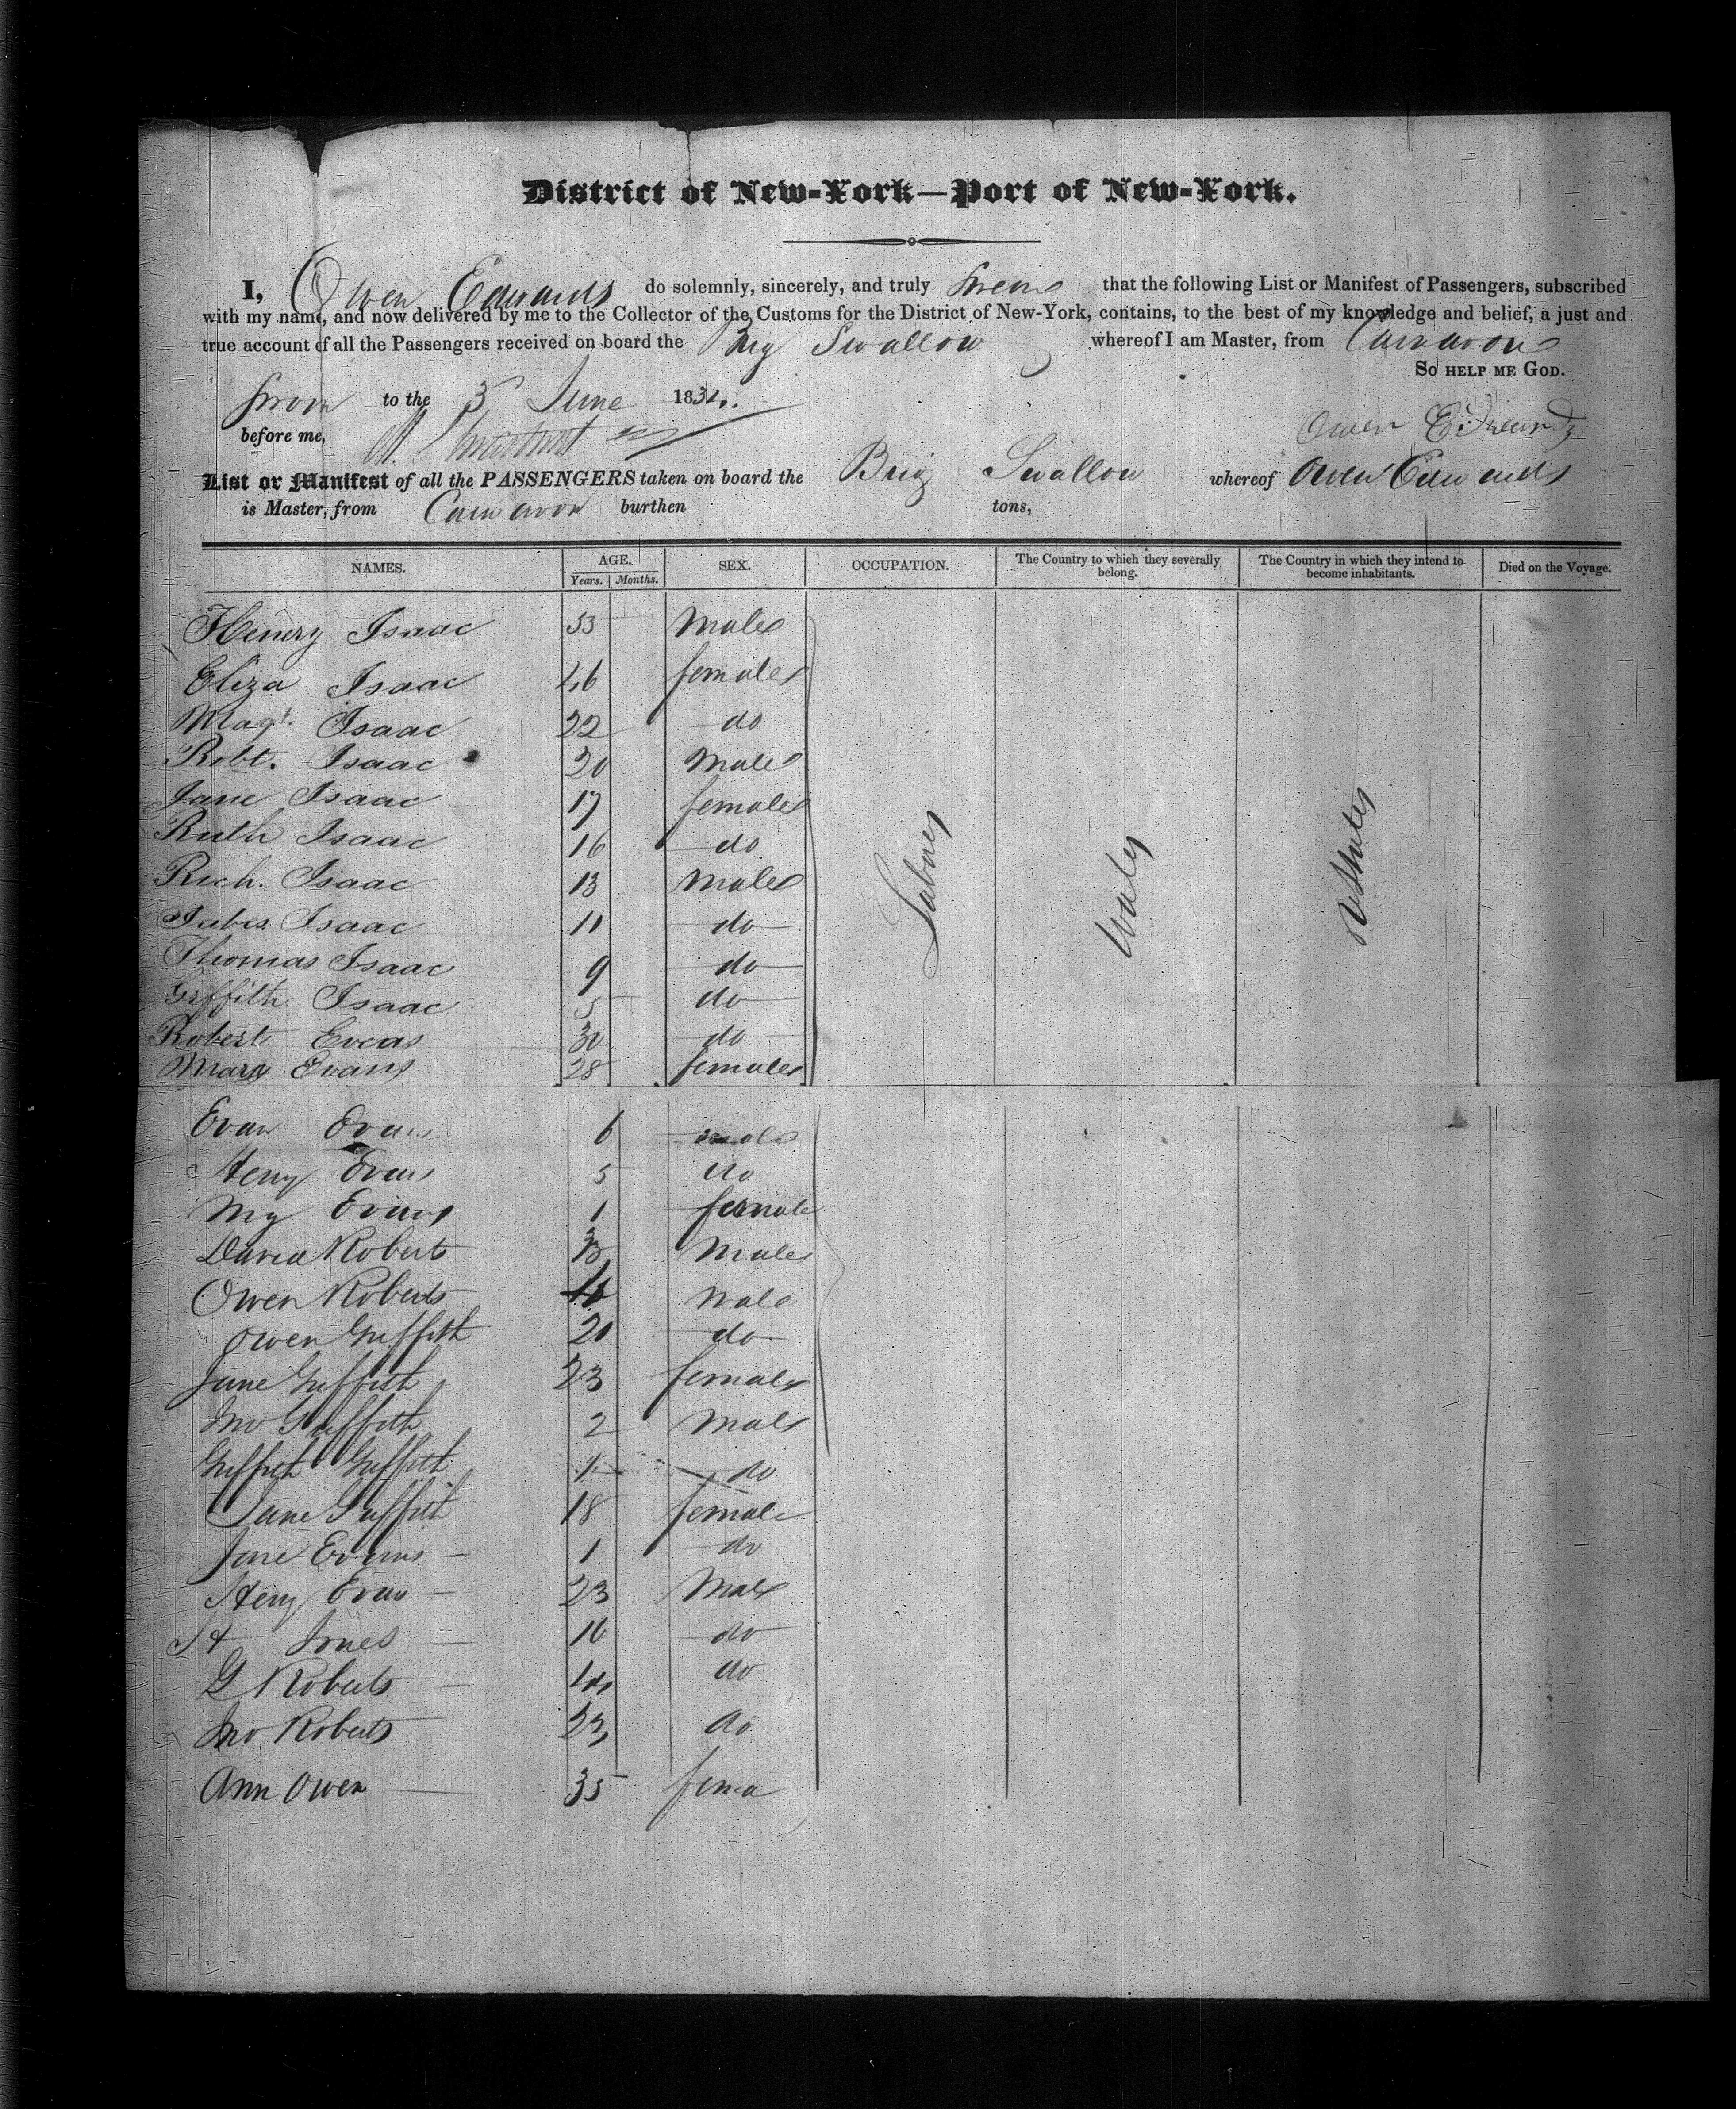 District of New-York—Port of New-York.
I, Owen Edwards do solemnly, sincerely, and truly swear that the following List or Manifest of Passengers, subscribed
with my name, and now delivered by me to the Collector of the Customs for the District of New-York, contains, to the best of my knowledge and belief, a just and
true account of all the Passengers received on board the Brig Swallow whereof I am Master, from Carnarvon
So help me God.
sworn to the 5 June 183
before me, Owen Edwards
List or Manifest of all the PASSENGERS taken on board the Brig Swallow whereof Owen Edwards
is Master, from Carnarvon burthen tons,
NAMES. AGE. SEX. OCCUPATION. The Country to which they severally belong. The Country in which they intend to become inhabitants. Died on the Voyage.
Years. Months.
Henery Isaac 53 Male
Eliza Isaac 46 female
Magt. Isaac 22 do
Robt. Isaac 20 Male
Jane Isaac 17 female
Ruth Isaac 16 do
Rich. Isaac 13 Male
Jabes Isaac 11 do
Thomas Isaac 9 do
Griffith Isaac 5 do
Robert Evans 30 do
Mary Evans 28 female
Labour Wales UStates
Evan Evans 6 male
Henry Evans 5 do
My Evans 1 female
David Roberts Male
Owen Roberts Male
Owen Griffith 20 do
Jane Griffith 23 female
Jno Griffith 2 Male
Griffith Griffith 1 do
Jane Griffith 18 female
Jane Evans — 1 do
Heny Evan — 23 Male
Jones — 16 do
G Roberts — 14 do
Jno Roberts 23 do
Ann Owen — 35 fema